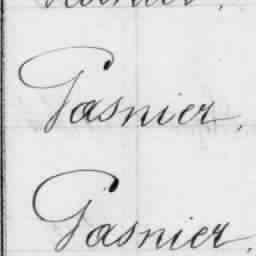 Gasnier.
Gasnier.